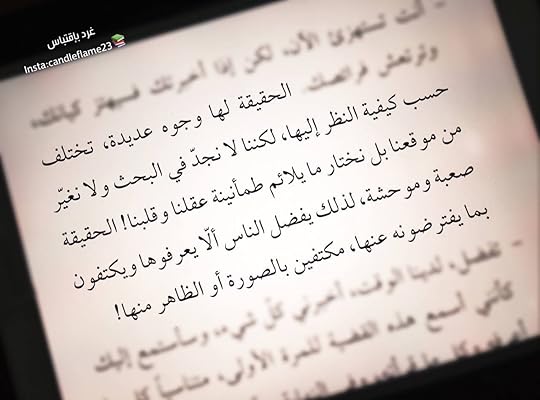 غرد بإقتباس
Insta:candleflame23
- أنت تستهزئ الآن، لكن إذا أخبرتك فسيهتز كيانك،
وترتعش فرائصك. الحقيقة لها وجوه عديدة، تختلف
حسب كيفية النظر إليها، لكننا لا نجدّ في البحث ولا نغيّر
من موقعنا بل نختار ما يلائم طمأنينة عقلنا وقلبنا! الحقيقة
صعبة وموحشة، لذلك يفضل الناس ألّا يعرفوها ويكتفون
بما يفترضونه عنها، مكتفين بالصورة أو الظاهر منها!
- تفضل، لدينا الوقت، أخبرني كلّ شيء، وسأستمع إليك
كأنني أسمع هذه القضية للمرة الأولى، متناسياً كل